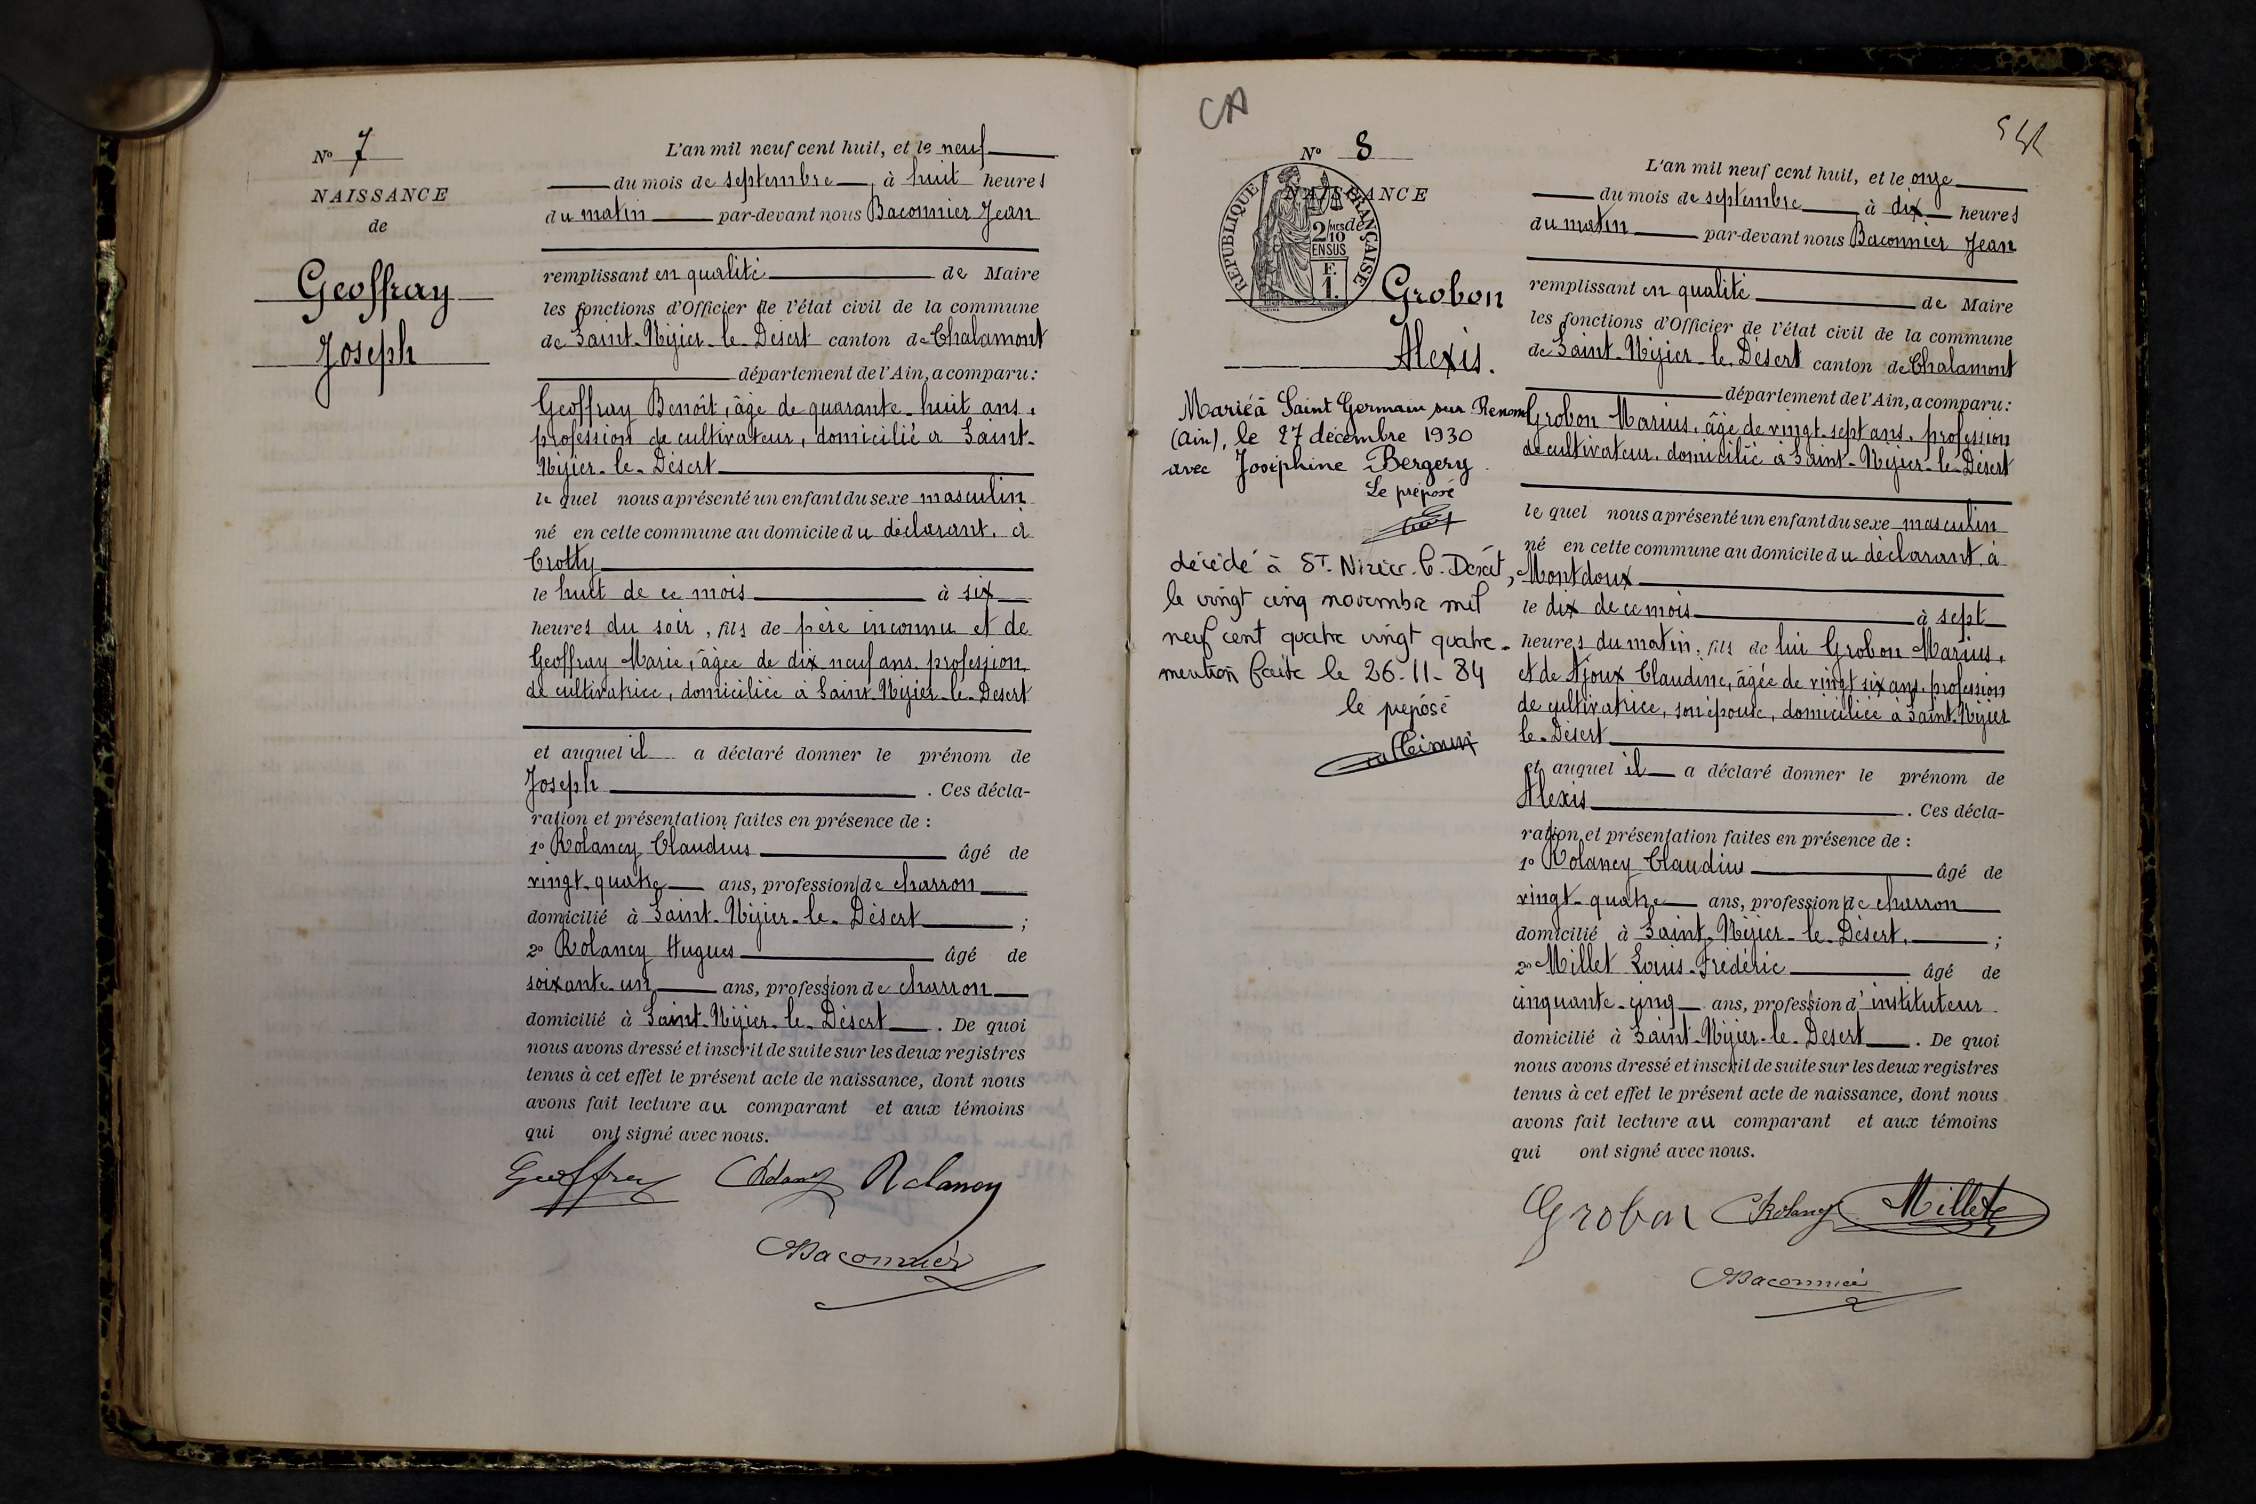 N° 7
NAISSANCE
de
Geoffray
Joseph
L'an mil neuf cent huit, et le neuf
du mois de septembre, à huit heures
du matin par-devant nous Baconnier Jean
remplissant en qualité de Maire
les fonctions d'Officier de l'état civil de la commune
de Saint-Nizier-le-Désert canton de Chalamont
département de l'Ain, a comparu :
Geoffray Benoît, âgé de quarante-huit ans,
profession de cultivateur, domicilié à Saint-
Nizier-le-Désert
le quel nous a présenté un enfant du sexe masculin
né en cette commune au domicile du déclarant, à
Crotty
le huit de ce mois à six
heures du soir, fils de père inconnu et de
Geoffray Marie, âgée de dix neuf ans, profession
de cultivatrice, domiciliée à Saint-Nizier-le-Désert
et auquel il a déclaré donner le prénom de
Joseph . Ces décla-
ration et présentation faites en présence de :
1° Rolancy Claudius âgé de
vingt-quatre ans, profession de charron
domicilié à Saint-Nizier-le-Désert ;
2° Rolancy Hugues âgé de
soixante-un ans, profession de charron
domicilié à Saint-Nizier-le-Désert . De quoi
nous avons dressé et inscrit de suite sur les deux registres
tenus à cet effet le présent acte de naissance, dont nous
avons fait lecture au comparant et aux témoins
qui ont signé avec nous.
Geoffray CRolancy Rolancy
Baconnier
CA
N° 8
NAISSANCE
de
RÉPUBLIQUE FRANÇAISE
2 MES
10
EN SUS
F.
1.
Grobon
Alexis.
Marié à Saint Germain sur Renom
(Ain), le 27 décembre 1930
avec Joséphine Bergery.
Le préposé
décédé à ST. Nizier-le-Désert,
le vingt cinq novembre mil
neuf cent quatre vingt quatre-
mention faite le 26-11-84
le préposé
L'an mil neuf cent huit, et le onze
du mois de septembre à dix heures
du matin par-devant nous Baconnier Jean
remplissant en qualité de Maire
les fonctions d'Officier de l'état civil de la commune
de Saint-Nizier-le-Désert canton de Chalamont
département de l'Ain, a comparu :
Grobon Marius, âgé de vingt-sept ans, profession
de cultivateur, domicilié à Saint-Nizier-le-Désert
le quel nous a présenté un enfant du sexe masculin
né en cette commune au domicile du déclarant, à
Montdoux
le dix de ce mois à sept
heures du matin, fils de lui Grobon Marius,
et de Ajoux Claudine, âgée de vingt six ans, profession
de cultivatrice, son épouse, domiciliée à Saint-Nizier
le-Désert
et auquel il a déclaré donner le prénom de
Alexis . Ces décla-
ration et présentation faites en présence de :
1° Rolancy Claudius âgé de
vingt-quatre ans, profession de charron
domicilié à Saint-Nizier-le-Désert, ;
2° Millet Louis-Frédéric âgé de
cinquante-cinq ans, profession d'instituteur
domicilié à Saint-Nizier-le-Désert . De quoi
nous avons dressé et inscrit de suite sur les deux registres
tenus à cet effet le présent acte de naissance, dont nous
avons fait lecture au comparant et aux témoins
qui ont signé avec nous.
Grobon CRolancy Millet
Baconnier